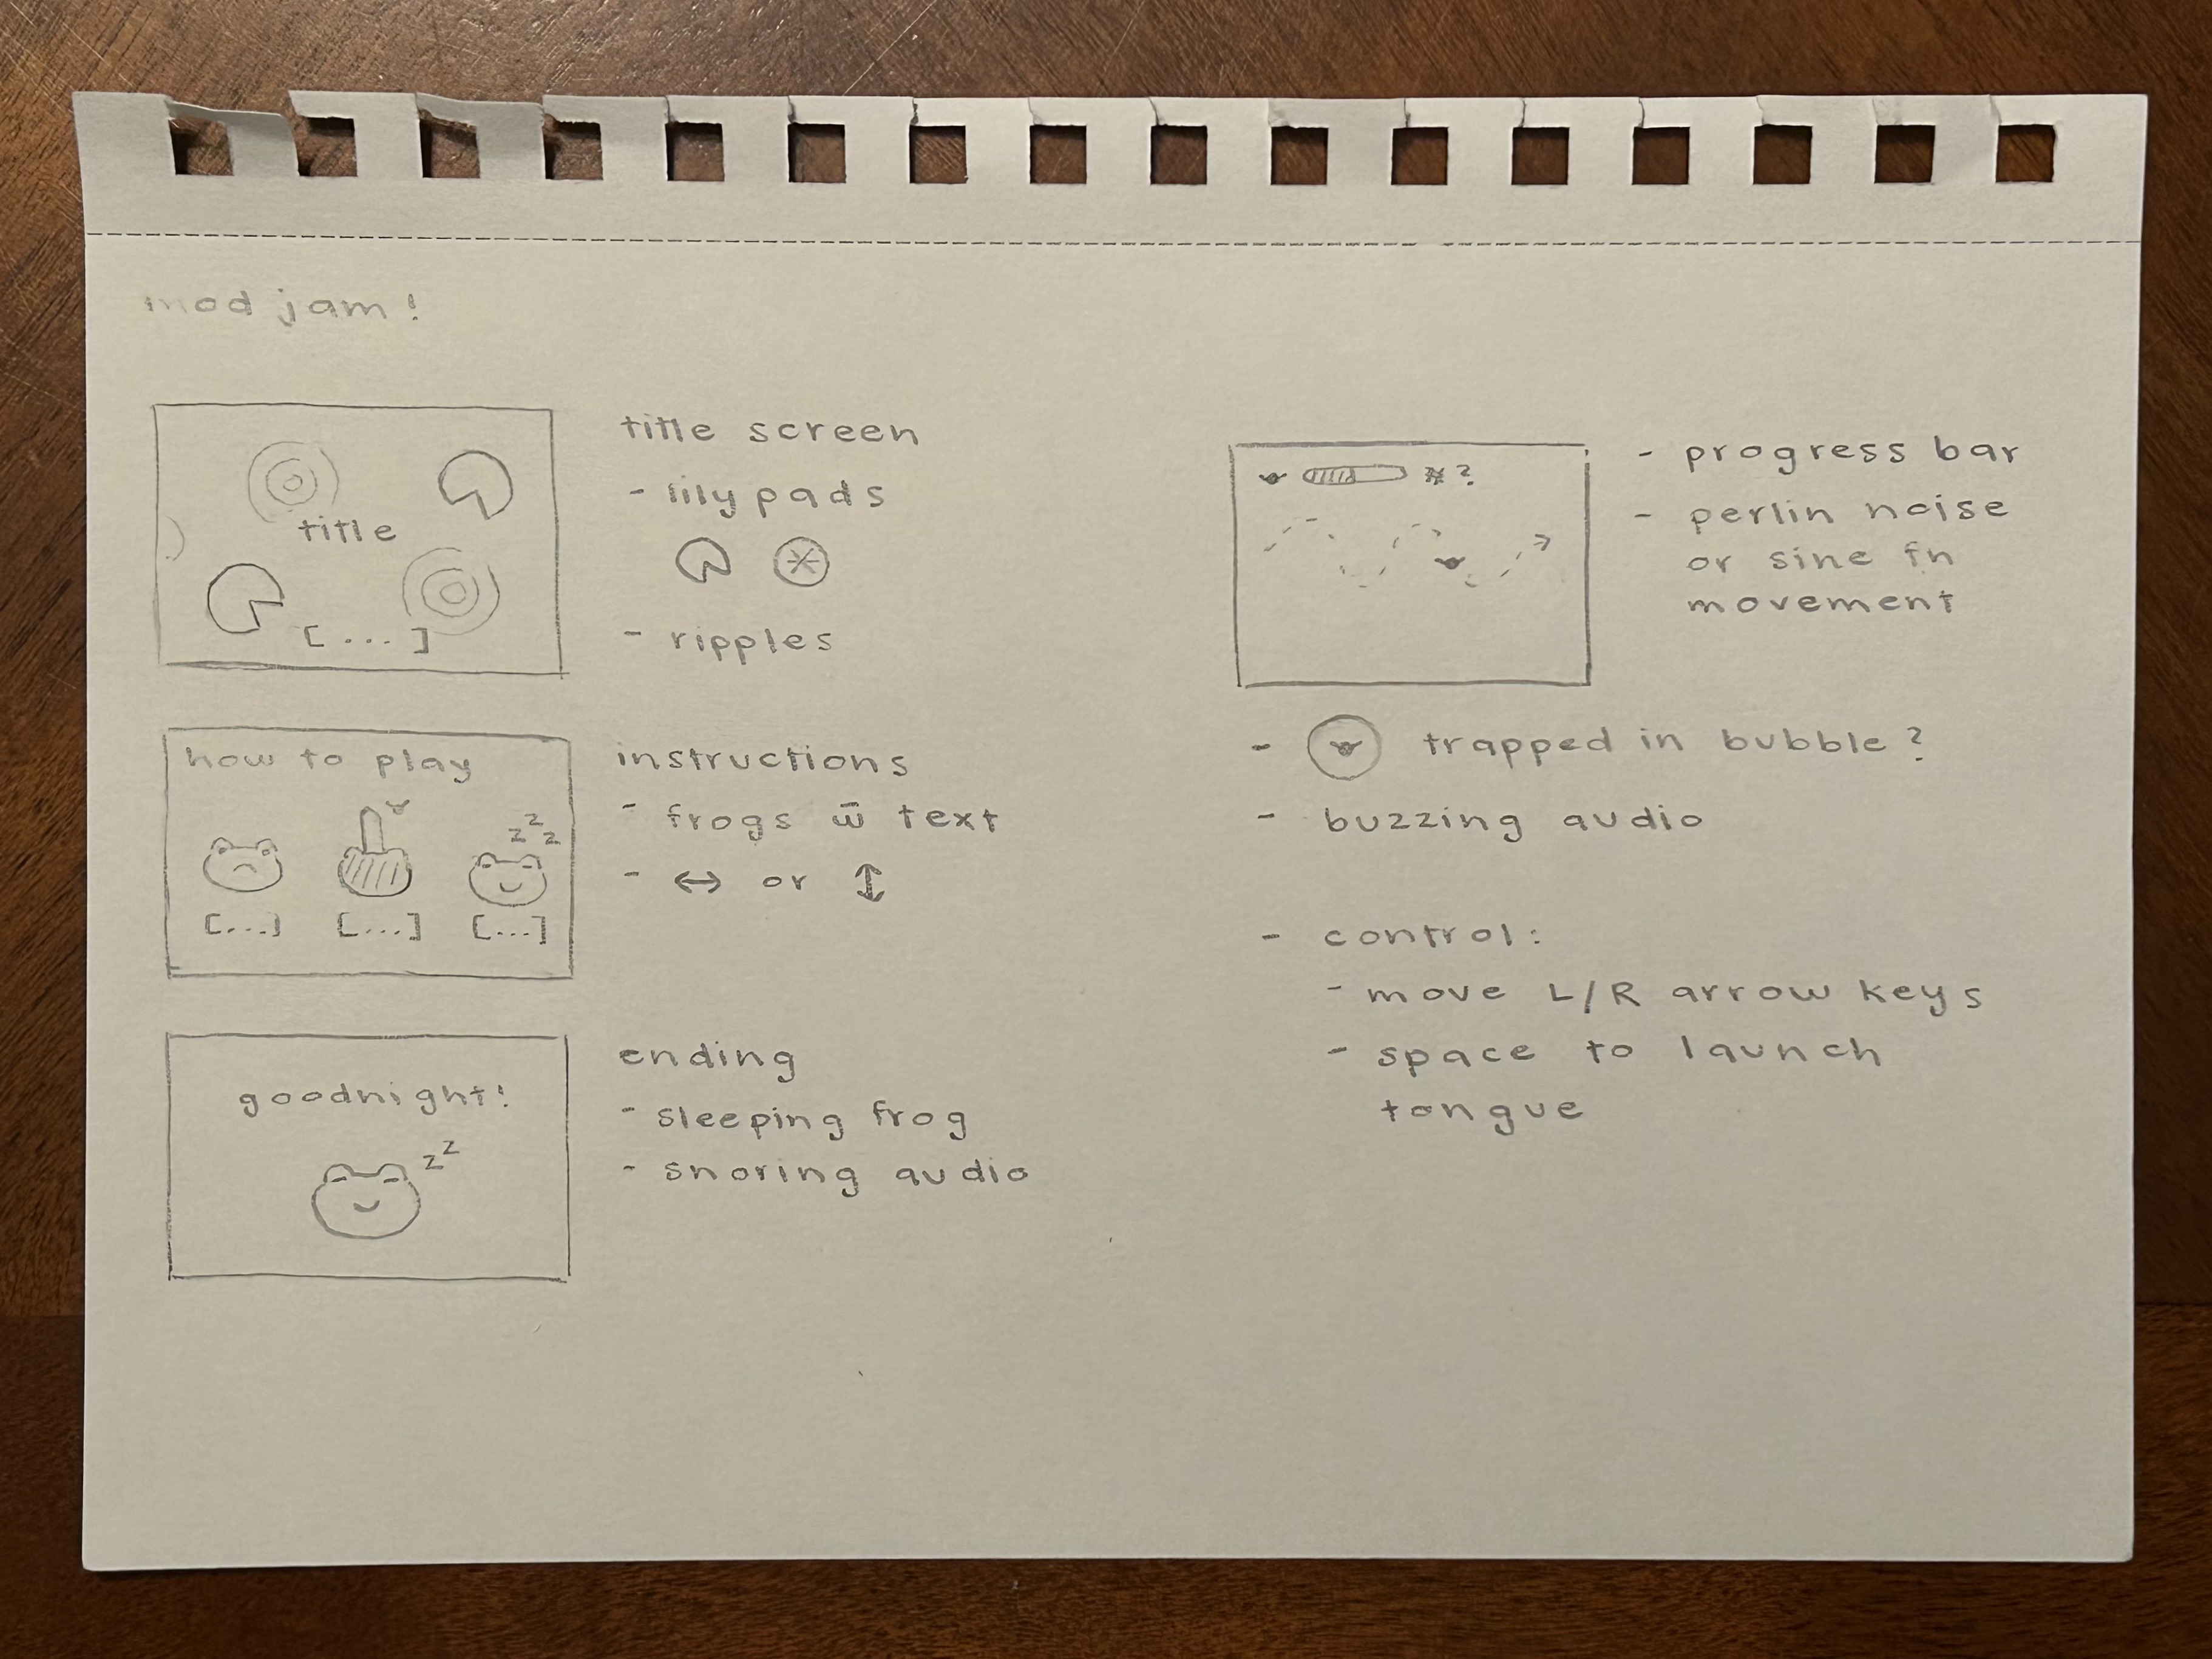 mod jam!
title
[...]
title screen
- lily pads
- ripples
how to play
z z z
[...] [...] [...]
instructions
- frogs w̄ text
- ↔ or ↕
goodnight!
z z
ending
- sleeping frog
- snoring audio
?
- progress bar
- perlin noise
or sine fn
movement
- trapped in bubble?
- buzzing audio
- control:
- move L/R arrow keys
- space to launch
tongue